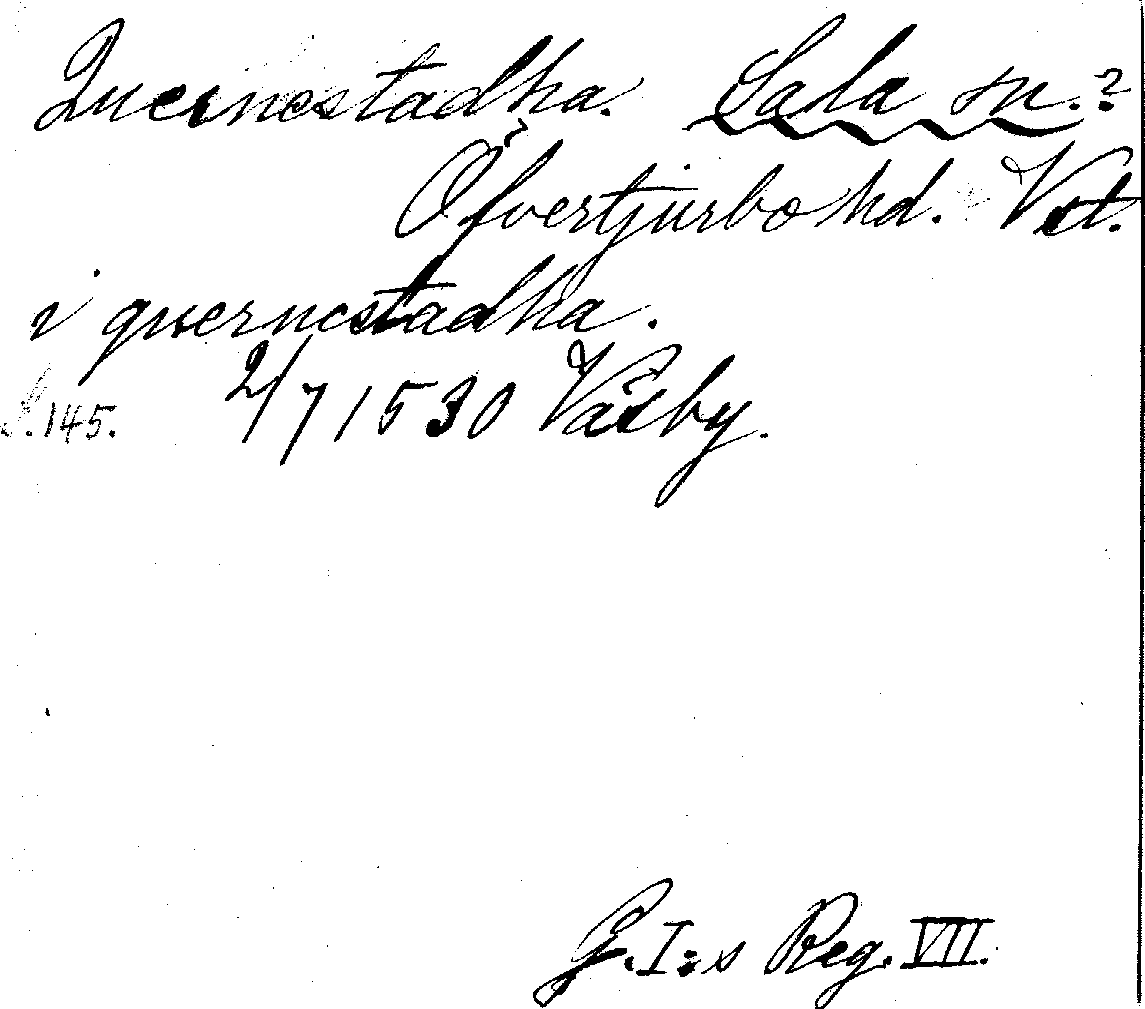 Quernestadha. Sala sn.?
Öfvertjurbo hd. Vstl.
i quernestadha.
S. 145. 2/7 1530 Väsby.
G. I:s Reg. VII.